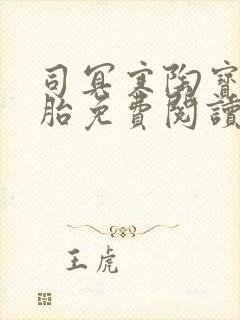 司冥寒陶寶
胎免費閱讀
王虎